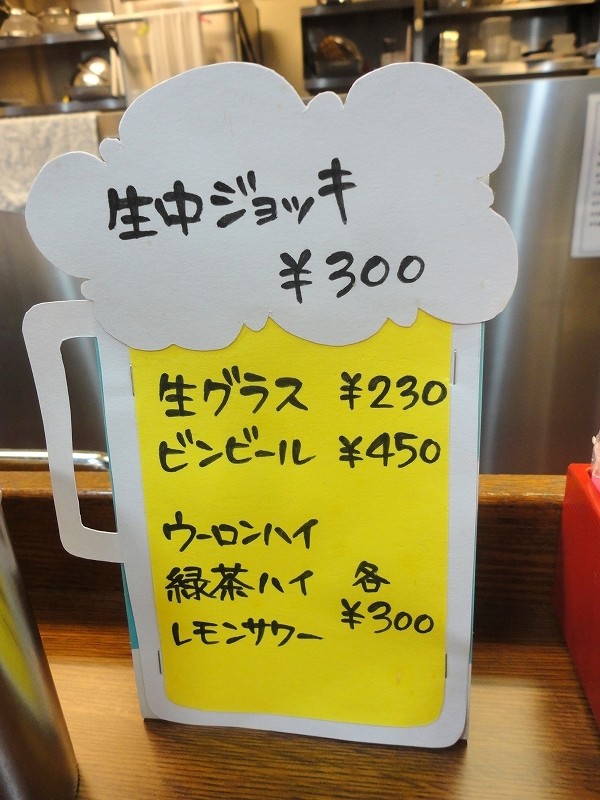 生中ジョッキ
¥300
生グラス ¥230
ビンビール ¥450
ウーロンハイ
緑茶ハイ 各
レモンサワー ¥300